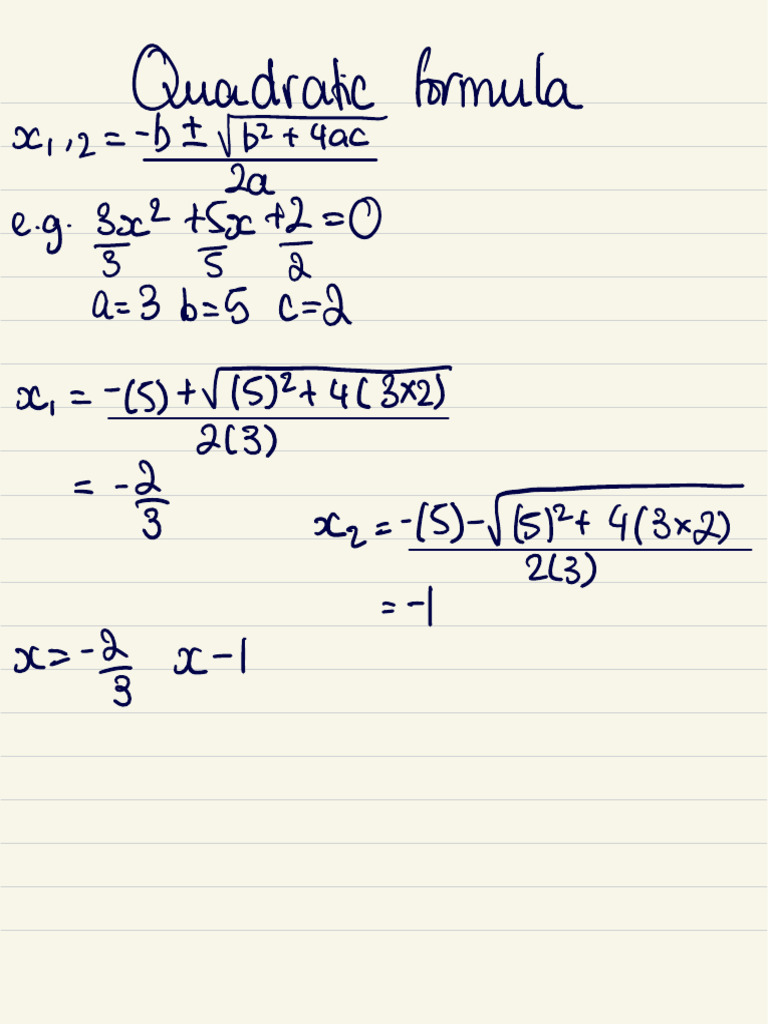 Quadratic formula
x₁,₂ = -b ± √(b² + 4ac)
2a
e.g. 3x² + 5x + 2 = 0
3 5 2
a = 3 b = 5 c = 2
x₁ = -(5) + √((5)² + 4(3×2))
2(3)
= -2
3
x₂ = -(5) - √((5)² + 4(3×2))
2(3)
= -1
x = -2 x - 1
3